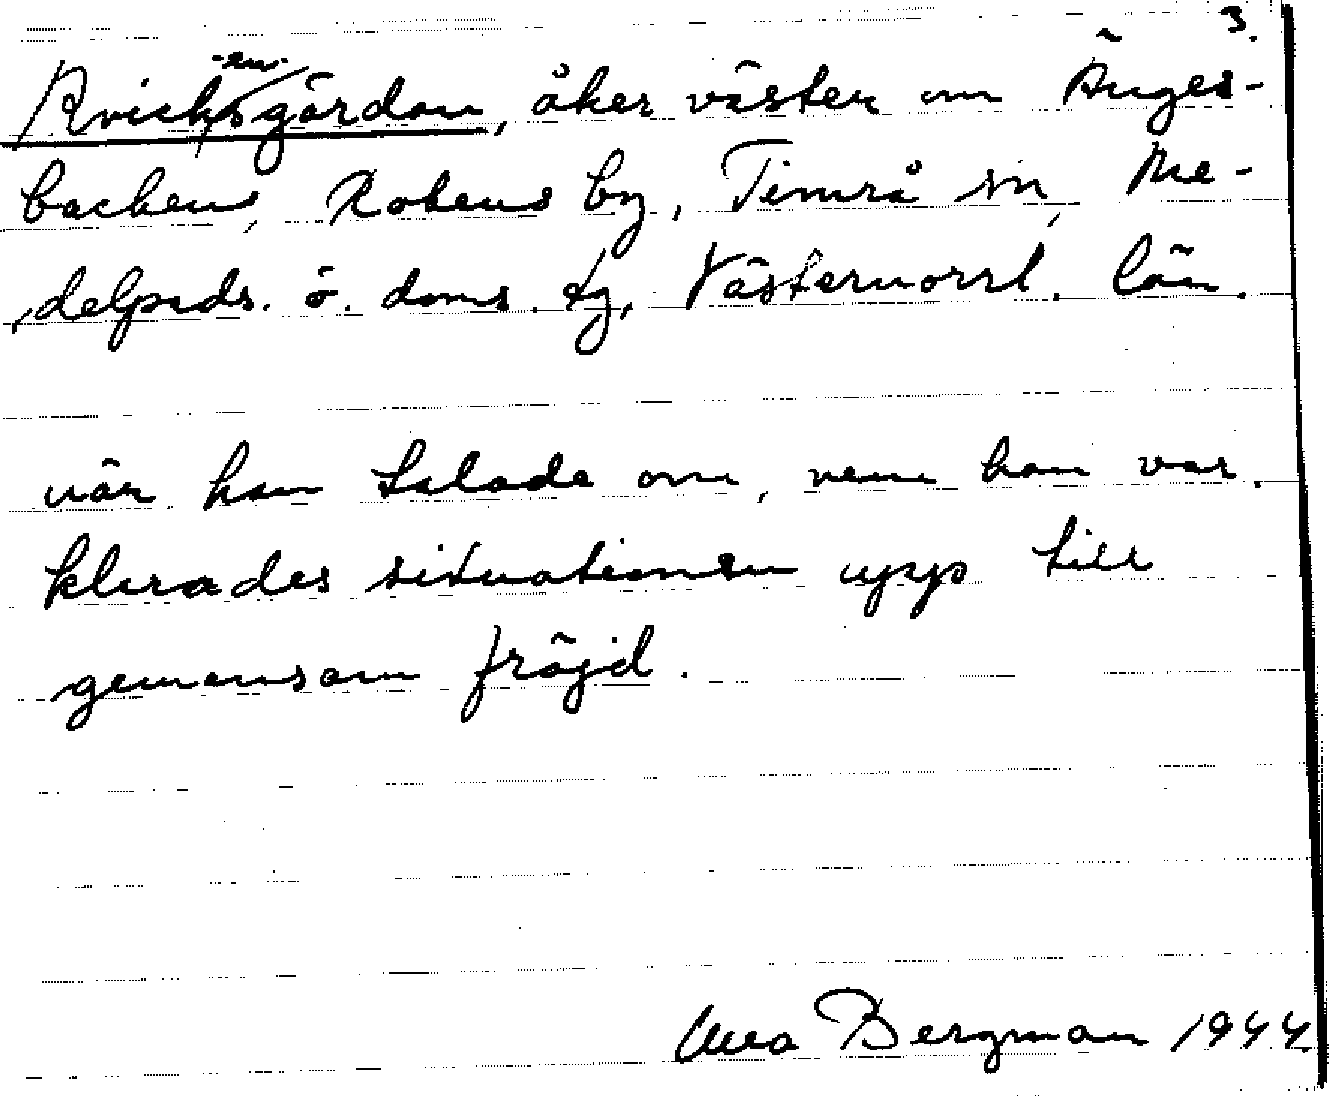 3.
-en-
Kvicksgärdan, åker väster om Änges-
backen, Rotens by, Timrå sn, Me-
delpads. ö. doms. tg, Västernorrl. län.
när han talade om, vem han var.
klarades situationen upp till
gemensam fröjd.
Bergman 1944.